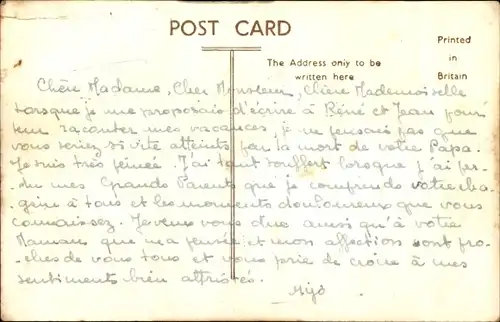 POST CARD
The Address only to be
written here
Printed
in
Britain
Chère Madame, Cher Monsieur, Chère Mademoiselle
Lorsque je me proposais d'écrire à Réné et Jean pour
leur raconter mes vacances, je ne pensais pas que
vous seriez si vite atteints par la mort de votre Papa.
Je suis très peinée. J'ai tant souffert lorsque j'ai per-
du mes Grands Parents que je comprends votre cha-
grin à tous et les moments douloureux que vous
connaissez. Je veux vous dire ainsi qu'à votre
Maman que ma pensée et mon affection sont pro-
ches de vous tous et vous prie de croire à mes
sentiments bien attristés.